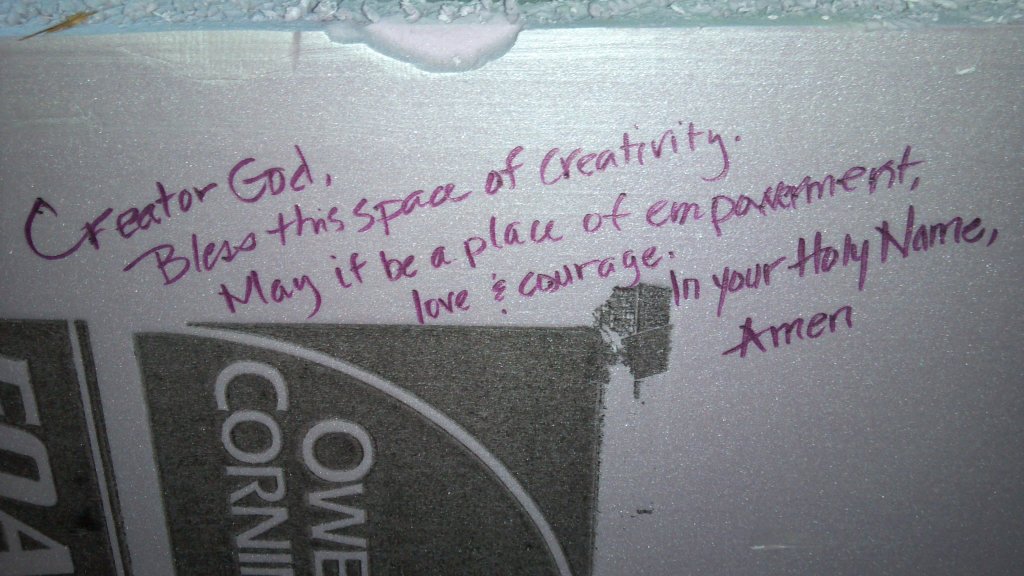 Creator God,
Bless this space of Creativity.
May it be a place of empowerment,
love & courage.
In your Holy Name,
Amen
OWE
CORNI
FOA